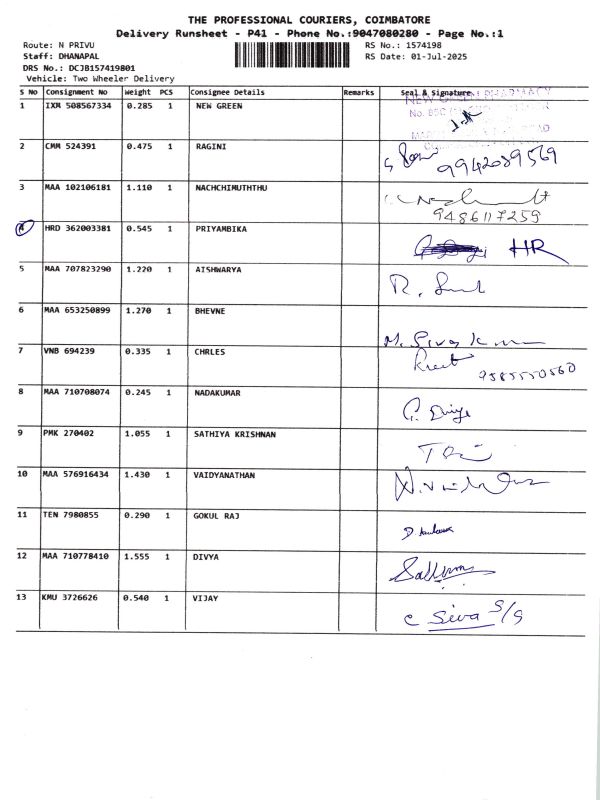 THE PROFESSIONAL COURIERS, COIMBATORE
Delivery Runsheet - P41 - Phone No.:9047080280 - Page No.:1
Route: N PRIVU
RS No.: 1574198
Staff: DHANAPAL
RS Date: 01-Jul-2025
DRS No.: DCJB157419801
Vehicle: Two Wheeler Delivery
S No Consignment No Weight PCS Consignee Details Remarks Seal & Signature
1 IXM 508567334 0.285 1 NEW GREEN
2 CMM 524391 0.475 1 RAGINI 9942089569
3 MAA 102106181 1.110 1 NACHCHIMUTHTHU
9486117259
4 HRD 362003381 0.545 1 PRIYAMBIKA HR
5 MAA 707823290 1.220 1 AISHWARYA
6 MAA 653250899 1.270 1 BHEVNE
M. Sivakumar
7 VNB 694239 0.335 1 CHRLES
9585550560
8 MAA 710708074 0.245 1 NADAKUMAR
9 PMK 270402 1.055 1 SATHIYA KRISHNAN
10 MAA 576916434 1.430 1 VAIDYANATHAN
11 TEN 7980855 0.290 1 GOKUL RAJ
12 MAA 710778410 1.555 1 DIVYA
13 KMU 3726626 0.540 1 VIJAY
C Siva S/G